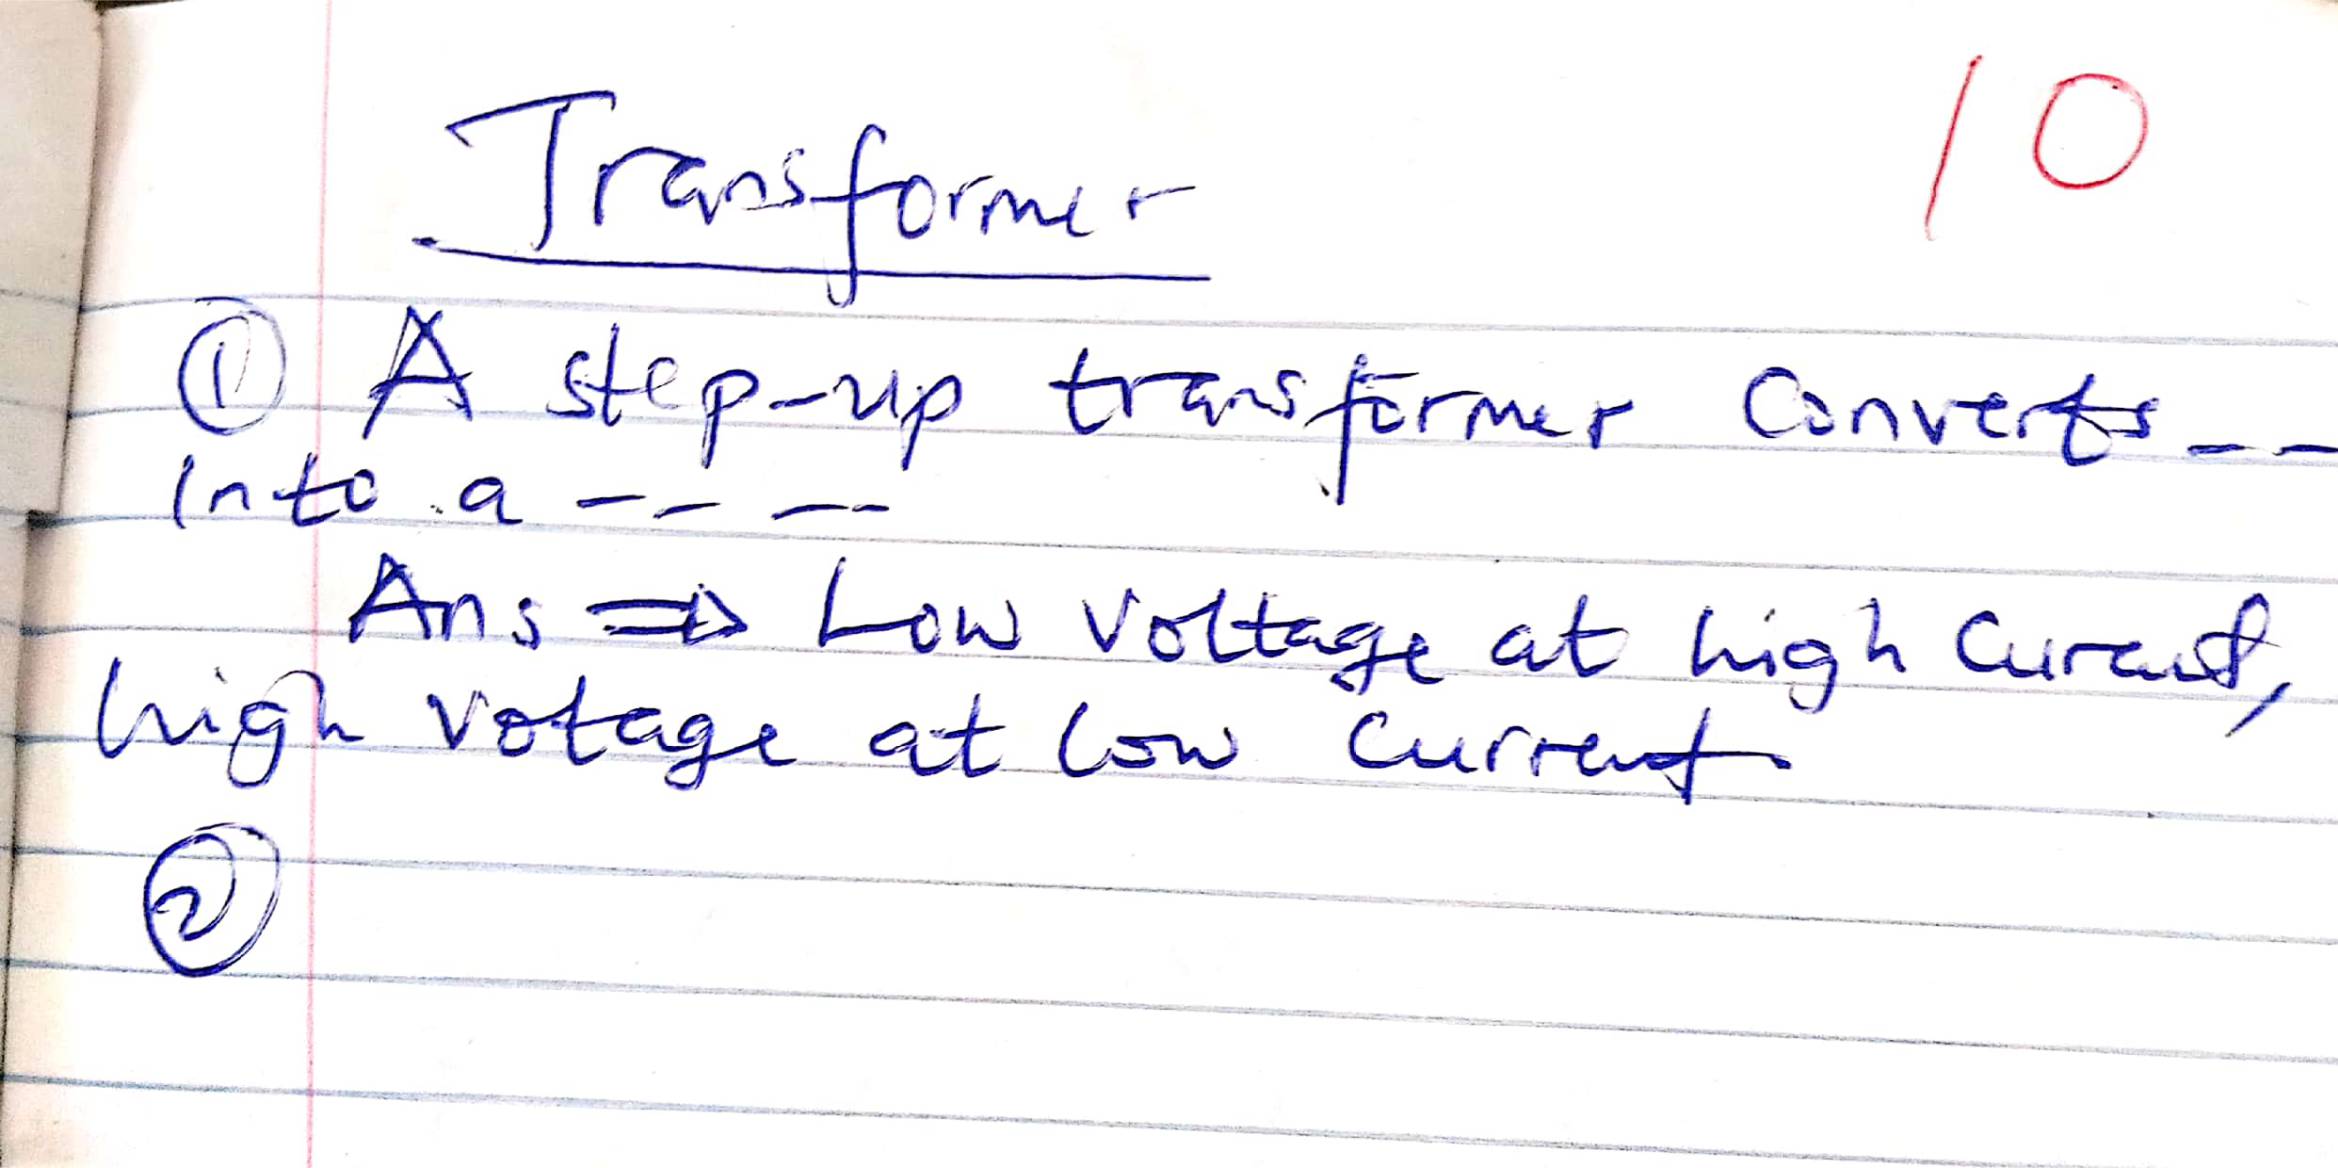 Transformer
10
① A step-up transformer Converts --
into a -- --
Ans ⇒ Low Voltage at high Current,
high Votage at low Current
②